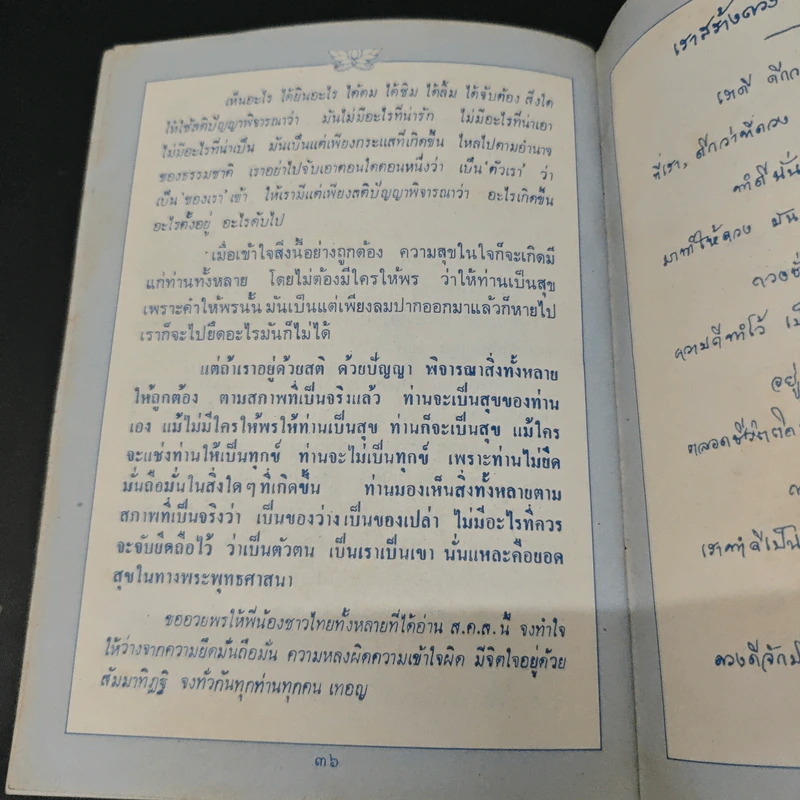 เห็นอะไร ได้ยินอะไร ได้ดม ได้ชิม ได้ลิ้ม ได้จับต้อง สิ่งใด
ให้ใช้สติปัญญาพิจารณาว่า มันไม่มีอะไรที่น่ารัก ไม่มีอะไรที่น่าเอา
ไม่มีอะไรที่น่าเป็น มันเป็นแต่เพียงกระแสที่เกิดขึ้น ไหลไปตามอำนาจ
ของธรรมชาติ เราอย่าไปจับเอาตอนใดตอนหนึ่งว่า เป็น'ตัวเรา' ว่า
เป็น'ของเรา'เข้า ให้เรามีแต่เพียงสติปัญญาพิจารณาว่า อะไรเกิดขึ้น
อะไรตั้งอยู่ อะไรดับไป
เมื่อเข้าใจสิ่งนี้อย่างถูกต้อง ความสุขในใจก็จะเกิดมี
แก่ท่านทั้งหลาย โดยไม่ต้องมีใครให้พร ว่าให้ท่านเป็นสุข
เพราะคำให้พรนั้น มันเป็นแต่เพียงลมปากออกมาแล้วก็หายไป
เราก็จะไปยึดอะไรมันก็ไม่ได้
แต่ถ้าเราอยู่ด้วยสติ ด้วยปัญญา พิจารณาสิ่งทั้งหลาย
ให้ถูกต้อง ตามสภาพที่เป็นจริงแล้ว ท่านจะเป็นสุขของท่าน
เอง แม้ไม่มีใครให้พรให้ท่านเป็นสุข ท่านก็จะเป็นสุข แม้ใคร
จะแช่งท่านให้เป็นทุกข์ ท่านจะไม่เป็นทุกข์ เพราะท่านไม่ยึด
มั่นถือมั่นในสิ่งใดๆที่เกิดขึ้น ท่านมองเห็นสิ่งทั้งหลายตาม
สภาพที่เป็นจริงว่า เป็นของว่าง เป็นของเปล่า ไม่มีอะไรที่ควร
จะจับยึดถือไว้ ว่าเป็นตัวตน เป็นเราเป็นเขา นั่นแหละคือยอด
สุขในทางพระพุทธศาสนา
ขออวยพรให้พี่น้องชาวไทยทั้งหลายที่ได้อ่าน ส.ค.ส.นี้ จงทำใจ
ให้ว่างจากความยึดมั่นถือมั่น ความหลงผิดความเข้าใจผิด มีจิตใจอยู่ด้วย
สัมมาทิฏฐิ จงทั่วกันทุกท่านทุกคน เทอญ
๓๖
เราสร้างดวง
เรา, ดีกว่าที่ดวง
มาทำให้ดวง มัน
ความดีทำไว้
อยู่
เราทำดีเป็น
ดวงดีจัก